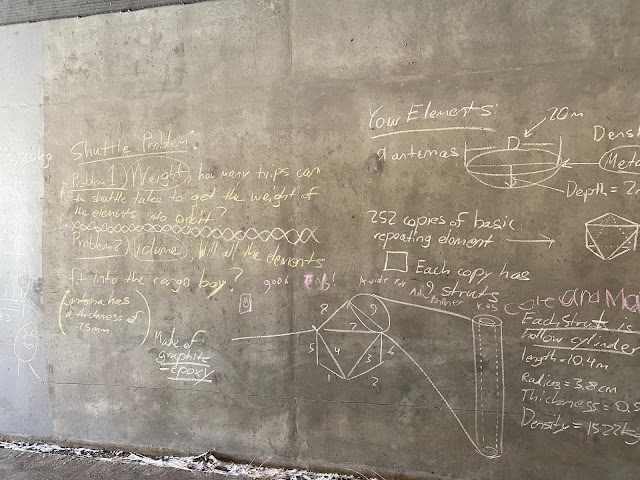 Shuttle Problem:
Problem 1) Weight, how many trips can
the shuttle take to get the weight of
the elements into orbit?
Problem 2) Volume, will all the elements
fit into the cargo bay?
(antenna has
a thickness of
7.5mm)
Made of
graphite
epoxy
Your Elements:
9 antennas
D
20m
Depth = 2
252 copies of basic
repeating element
Each copy has
9 struts
good Job!
8
9
7
5
4
3
6
1
2
Each Struts is
hollow cylinder
length = 10.4m
Radius = 3.8cm
Thickness = 0.5
Density = 1522kg